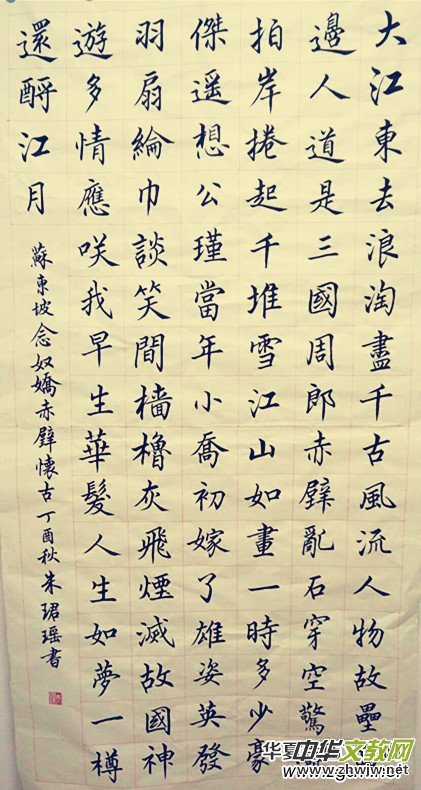 大江東去浪淘盡千古風流人物故壘
邊人道是三國周郎赤壁亂石穿空驚
拍岸捲起千堆雪江山如畫一時多少豪
傑遥想公瑾當年小喬初嫁了雄姿英發
羽扇綸巾談笑間檣櫓灰飛煙滅故國神
遊多情應咲我早生華髮人生如夢一樽
還酹江月
蘇東坡念奴嬌赤壁懷古丁酉秋朱珺瑶書
华夏
中华文教网